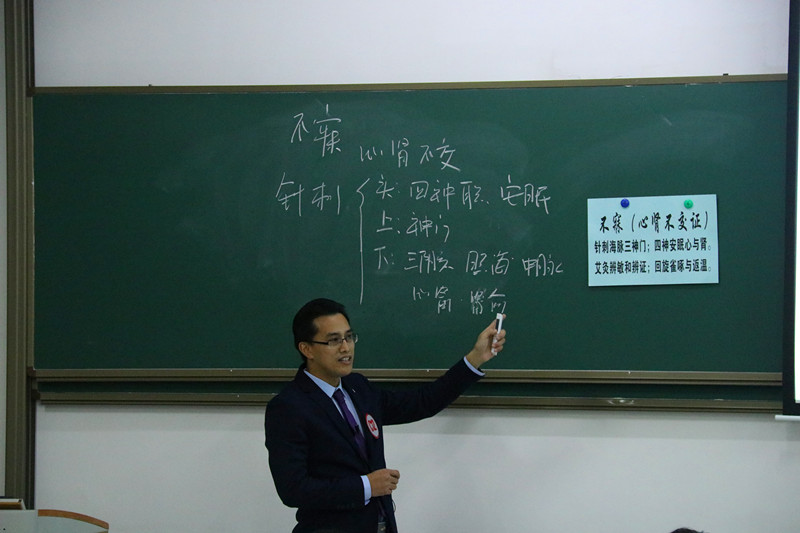 不寐
心肾不交
针刺
头：四神聪、安眠
上：神门
下：三阴交 照海 申脉
心俞 肾俞
不寐（心肾不交证）
针刺海脉三神门；四神安眠心与肾。
艾灸辨敏和辨证；回旋雀啄与返温。